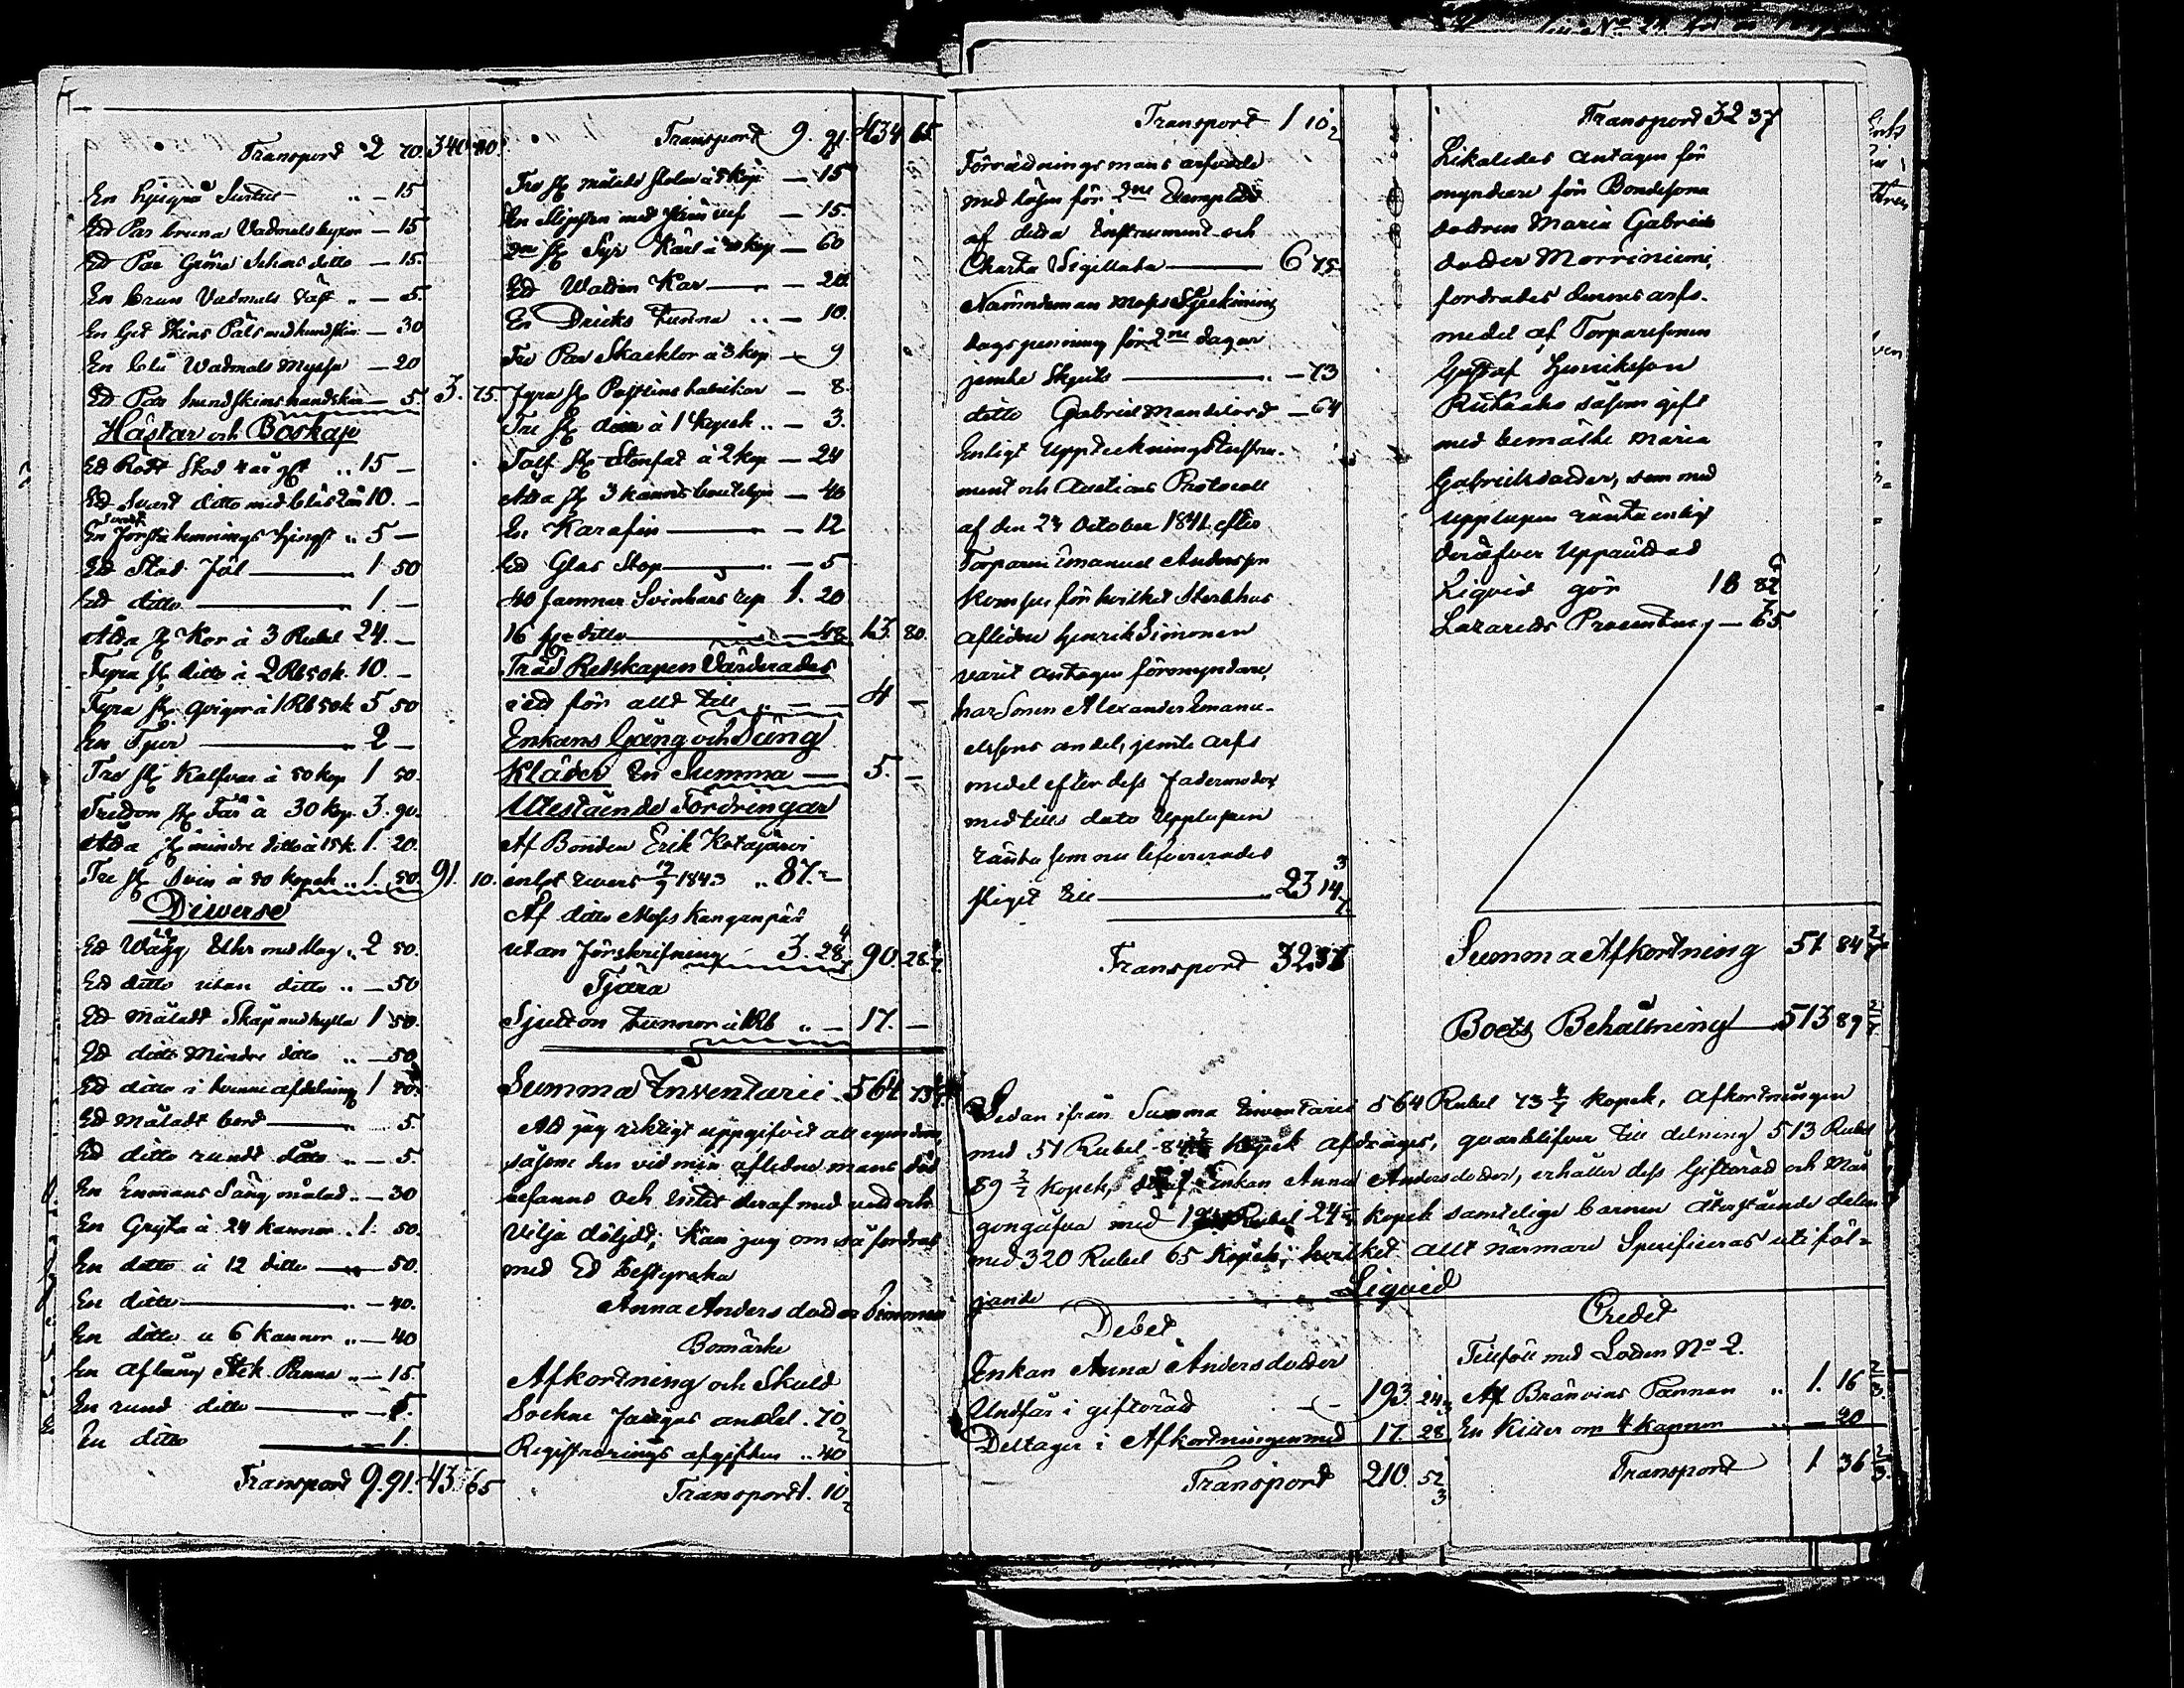 Transport 2 70. 340 80.
En ljusgrå Surtut .. — 15
Ett Par bruna Vadmals byxor — 15
Ett Par Gröna ditto — 15.
En brun Vadmals Väst .. — 5.
En Get Skins Päls med hundskin — 30
En blå Wadmals Myssa — 20
Ett Par hundskins handskar — 5. 3. 75.
Hästar och Boskap
Ett Rödt Stod 4 år gt .. 15 —
Ett Svart ditto med bläs 10. —
En Svart hingst .. 5 —
Ett Stod Föl — 1 50
Ett ditto — 1. —
Åtta st Kor à 3 Rubel 24. —
Fyra st ditto à 2 Rb 50 k. 10. —
Fyra st qvigor à 1 Rb 50 k 5 50
En Tjur — 2 —
Tre st Kalfvar à 50 kop 1 50.
Tretton st Får à 30 kop. 3. 90.
Åtta st mindre ditto à 15 k. 1. 20.
Tre st Svin à 50 kopek .. 1. 50. 91. 10.
Diverse
Ett Wägg Uhr med slag .. 2 50.
Ett ditto utan ditto .. — 50
Ett måladt Skåp med hylla 1 50.
Ett ditto Mindre ditto .. — 50
Ett ditto i tvenne afdelning 1
Ett Måladt bord — 5.
Ett ditto rundt ditto .. — 5.
En Enmans Säng målad .. — 30
En Gryta à 24 kannor .. 1. 50.
En ditto à 12 ditto — 50.
En ditto — 40.
En ditto à 6 kannor .. — 40
En aflång Stek Panna .. — 15.
En rund ditto — 5.
En ditto — 1.
Transport 9. 91. 43. 65
Transport 9. 91. 434 65
Tre st målade stolar à 5 kop — 15
En Slipsten med — 15.
st Kärl à 20 kop — 60
Ett Kar — 20.
En Dricks tunna .. — 10.
Tre Par Skacklor à 3 kop — 9
Fyra st Postlins tallrikar — 8.
Tre st à 1 kopek .. — 3.
Tolf st Stenfat à 2 kop — 24
Åtta st 3 kannors — 40
En Karafin — 12
Ett Glas Stop — 5
famnar Svinhårs rep 1. 20
16 ditto — 48 13. 80.
Träd Redskapen Värderades
ett för allt till .. — 4 —
Enkans Gång och Säng
Kläder En Summa — 5. —
Utestående Fordringar
Af Bonden Erik Kotajärvi
enligt revers 1843 .. 87. —
Af ditto Mats Kanganpää
utan förskrifning 3. 28 4/7 90. 28 4/7
Tjära
Sjutton tunnor à 1 Rb .. — 17. —
Summa Inventarii 564 73 4/7
Att jag riktigt uppgifvit all egendom,
såsom den vid min aflidne mans död
befanns och intet deraf med vett och
vilja döljdt; kan jag om så fordras
med Ed bestyrcka
Anna Andersdotter Simonen
Bomärke
Afkortning och Skuld
Sockne andel . 70
Registrerings afgiften .. 40
Transport 1. 10
Transport 1 10
Förrättningsmans arfvode
med lösen för 2ne Exemplar
af detta Instrument och
Charta Sigillata — 6 75
Nämndeman Mats
dagspenning för 2ne dagar
jemte Skjuts — 73
ditto Gabriel — 64
Enligt Uppteckningsinstru-
ment och Auctions Protocoll
af den October 1841 efter
Torparen Emanuel Andersson
för hvilket Sterbhus
aflidne Henrik Simonen
varit antagen förmyndare,
har Sonen Alexander Emanu-
elssons andel, jemte arfs
medel efter dess fadermoder,
med tills dato Upplupen
ränta som nu levererades
stigit till — 23 14 3/7
Transport 32 37
Transport 32 37
Likaledes antagen för
myndare för Bondesona
dottren Maria Gabriels
dotter Morriniemi,
fordrades dennes arfs-
medel af Torparesonen
Gustaf Henriksson
såsom gift
med bemälte Maria
Gabrielsdotter, som med
upplupen ränta enligt
deröfver Upprättad
Liqvid gör 18 82
Lazaretts Procenten — 65
Summa Afkortning 51 84 2/7
Boets Behållning 513 89 2/7
Sedan ifrån Summa Inventarii 564 Rubel 73 4/7 kopek, afkortningen
med 51 Rubel 84 2/7 kopek afdrages, qvarblifver till delning 513 Rubel
89 2/7 kopek, deraf Enkan Anna Andersdotter, erhåller dess Giftorätt och Mor
gongåfva med Rubel 24 kopek samtelige barnen återstående delen
med 320 Rubel 65 kopek, hvilket allt närmare Specificeras uti föl-
jande
Liquid
Debet
Enkan Anna Andersdotter
Undfår i giftorätt — 193. 24
Deltager i Afkortningen med 17. 28
Transport 210. 52
Credit
Tillföll med Lotten No 2.
Af Bränvins Pannan .. 1. 16 2/3
En Kittel om 4 kannor .. — 20
Transport 1 36 2/3